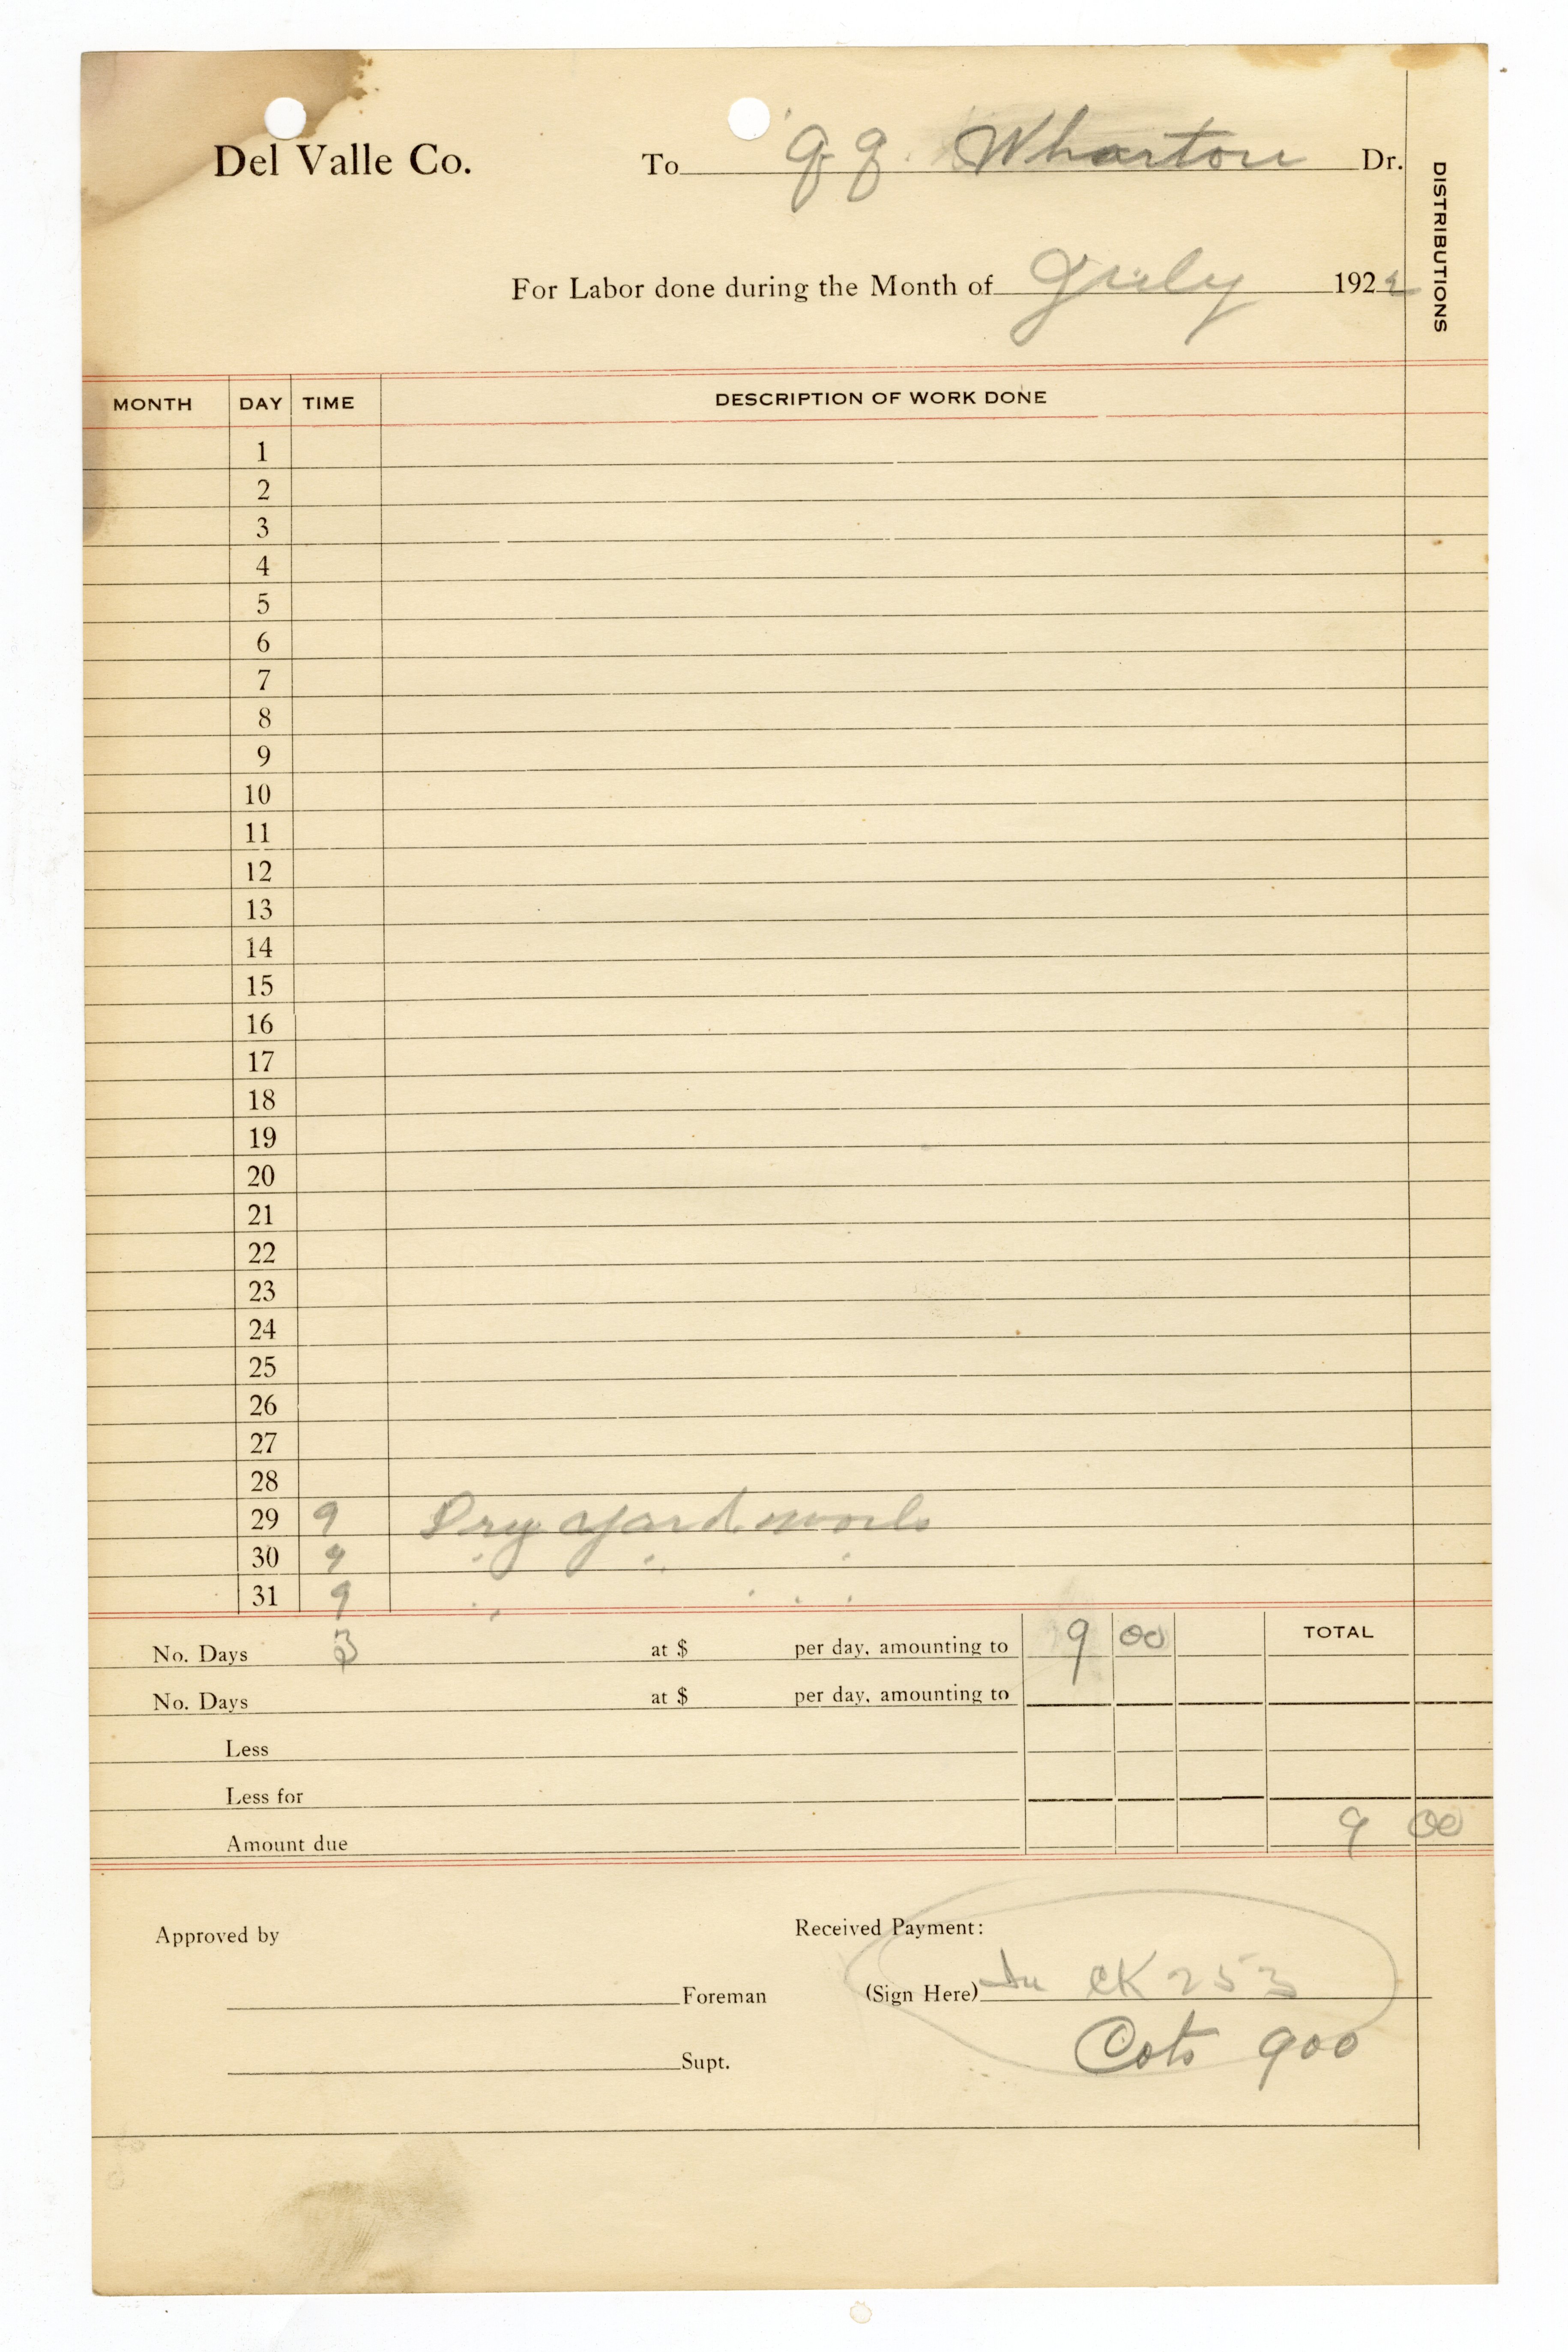 Del Valle Co. To J. J. Wharton Dr.
DISTRIBUTIONS
For Labor done during the Month of July 1922
MONTH DAY TIME DESCRIPTION OF WORK DONE
1
2
3
4
5
6
7
8
9
10
11
12
13
14
15
16
17
18
19
20
21
22
23
24
25
26
27
28
29 9 Dry yard work
30 9 " " "
31 9 " " "
No. Days 3 at $ per day, amounting to 9 00 TOTAL
No. Days at $ per day, amounting to
Less
Less for
Amount due 9 00
Approved by Received Payment:
Foreman (Sign Here) CK 253
Cots 900
Supt.